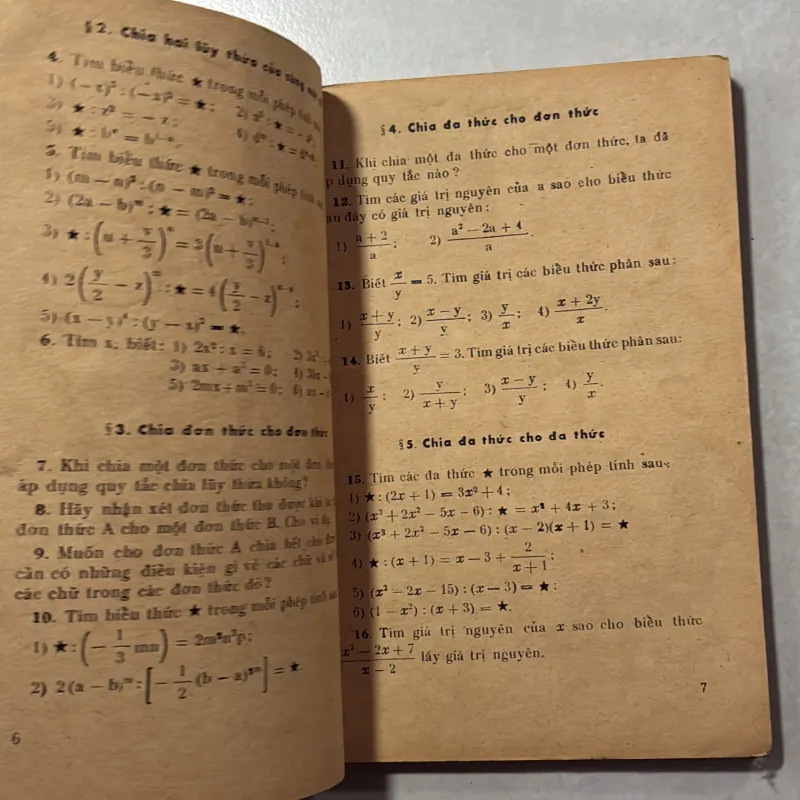 §2. Chia hai lũy thừa của cùng
4. Tìm biểu thức ★ trong mỗi phép tính
1) (−x)⁵ : (−x)³ = ★; 2)
3) ★ : x² = − x;
5) ★ :
5. Tìm biểu thức ★ trong mỗi phép tính
1) (m − n)⁵ : (n − m)³ = ★;
2) (2a − b)ᵐ : ★ = (2a − b)
3) ★ :
4) 2(y/2 − z) : ★ = 4(y/2 − z)
5) (x − y)⁴ : (y − x)² = ★.
6. Tìm x, biết: 1) 2x² : x = 6; 2)
3) ax + a² = 0; 4)
5) 2mx + m² = 0; 6)
§3. Chia đơn thức cho đơn thức
7. Khi chia một đơn thức cho một đơn
áp dụng quy tắc chia lũy thừa không?
8. Hãy nhận xét đơn thức thu được khi
đơn thức A cho một đơn thức B. Cho ví dụ.
9. Muốn cho đơn thức A chia hết cho
cần có những điều kiện gì về các chữ và số
các chữ trong các đơn thức đó?
10. Tìm biểu thức ★ trong mỗi phép tính
1) ★ : (− 1/3 mn) = 2m²n²p;
2) 2(a − b)ᵐ : [− 1/2 (b − a)] = ★
6
§4. Chia đa thức cho đơn thức
11. Khi chia một đa thức cho một đơn thức, ta đã
p dụng quy tắc nào?
12. Tìm các giá trị nguyên của a sao cho biểu thức
au đây có giá trị nguyên:
1) (a + 2)/a; 2) (a² − 2a + 4)/a.
13. Biết x/y = 5. Tìm giá trị các biểu thức phân sau:
1) (x + y)/y; 2) (x − y)/y; 3) y/x; 4) (x + 2y)/x.
14. Biết (x + y)/y = 3. Tìm giá trị các biểu thức phân sau:
1) x/y; 2) y/(x + y); 3) (x − y)/y; 4) y/x.
§5. Chia đa thức cho đa thức
15. Tìm các đa thức ★ trong mỗi phép tính sau:
1) ★ : (2x + 1) = 3x² + 4;
2) (x³ + 2x² − 5x − 6) : ★ = x² + 4x + 3;
3) (x³ + 2x² − 5x − 6) : (x − 2)(x + 1) = ★
4) ★ : (x + 1) = x − 3 + 2/(x + 1);
5) (x² − 2x − 15) : (x − 3) = ★;
6) (1 − x²) : (x + 3) = ★.
16. Tìm giá trị nguyên của x sao cho biểu thức
(x² − 2x + 7)/(x − 2) lấy giá trị nguyên.
7